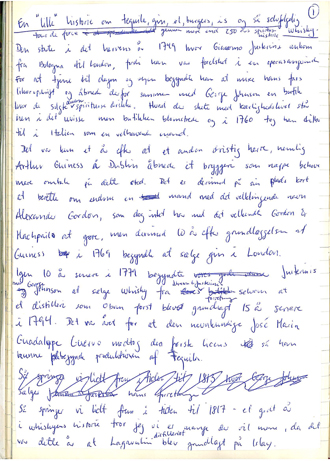 1
En "lille" historie om tequila, gin, øl, burgers, is og så selvfølgelig
tour de force gennem mere end 250 års spiritus historie whisky.
Den starte i det herrens år 1749 hvor Giacomo Justerini ankom
fra Bologna til London, fordi han var forelsket i en operasangerinde.
For at tjene til dagen og vejen begyndte han at mixe hans fars
likøropskrift og åbnede derfor sammen med George Johnson en butik
hvor de solgte spirituøse drikke. Hvad der skete med kærlighedslivet står
hen i det uvisse men butikken blomstrede og i 1760 tog han tilbage
til Italien som en velhavende mand.
Det var kun et år efter at et anden driftig herre, nemlig
Arthur Guiness i Dublin åbnede et bryggeri som næppe behøver
mere omtale på dette sted. Det er derimod på sin plads kort
at berette om endnu en mand med det velklingende navn
Alexander Gordon, som dog intet har med det velkendte Gordon &
MacPhail at gøre, men derimod 10 år efter grundlæggelsen af
Guiness i 1769 begyndte at sælge gin i London.
Igen 10 år senere i 1779 begyndte Justerinis
og Johnson at sælge whisky fra
et distilleri som Oban først blev grundlagt 15 år senere
i 1794. Det var året for at den navnkundige José Maria
Guadalupe Cuervo modtog den første licens så han
kunne påbegynde produktionen af Tequila.
Så springer vi lidt frem i tiden til 1817 - et godt år
i whiskyens historie tror jeg vi er mange der vil mene, da det
var dette år at Lagavulin distilleriet blev grundlagt på Islay.